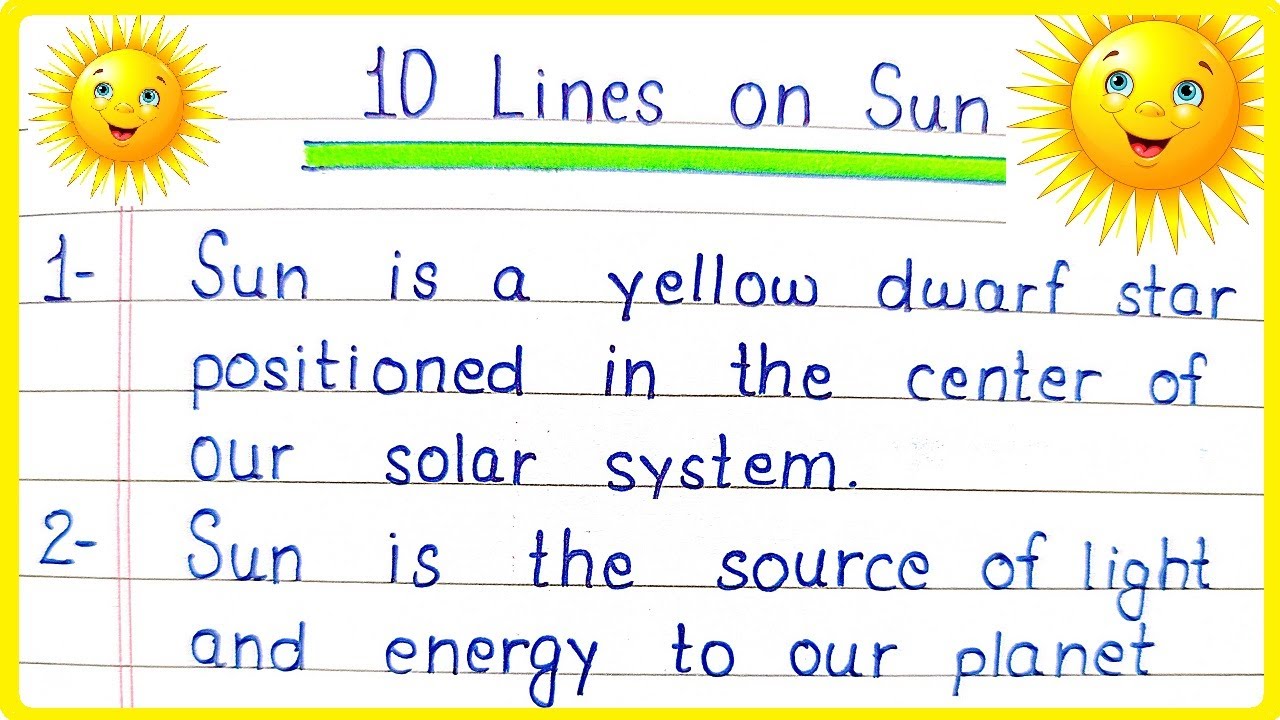 10 Lines on Sun
1- Sun is a yellow dwarf star
positioned in the center of
our solar system.
2- Sun is the source of light
and energy to our planet